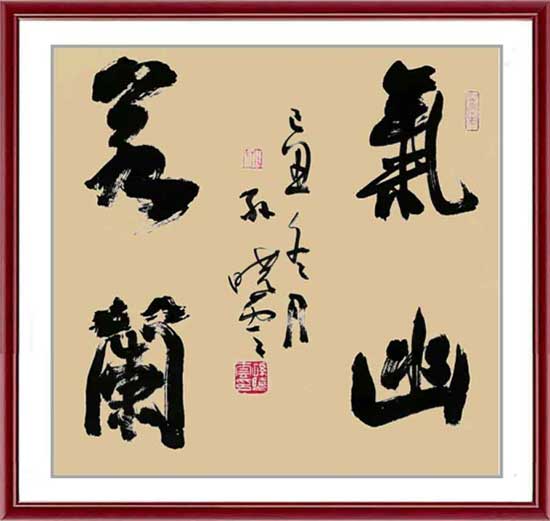 氣若
幽蘭
己丑冬月
孫曉雲